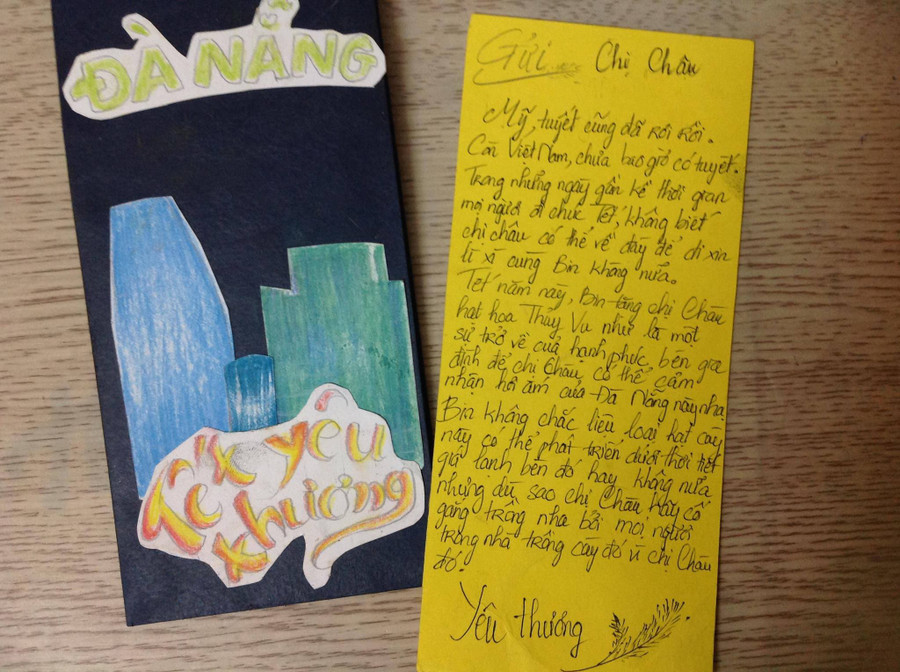 ĐÀ NẴNG
Tết yêu
thương
Gửi Chị Châu
Mỹ, tuyết cũng đã rơi rồi.
Còn Việt Nam, chưa bao giờ có tuyết.
Trong những ngày gần kề thời gian
mọi người đi chúc Tết, không biết
chị châu có thể về đây để đi xin
lì xì cùng Bin không nữa.
Tết năm này, Bin tặng chị Châu
hạt hoa Thủy Vu như là một
sử trở về của hạnh phúc bên gia
đình để chị Châu có thể cảm
nhận hơi ấm của Đà Nẵng này nha
Bin không chắc liệu loại hạt cây
này có thể phát triển dưới thời tiết
giá lạnh bên đó hay không nữa
nhưng dù sao chị Châu hãy cố
gắng trồng nha bởi mọi người
trong nhà trồng cây đó vì chị Châu
đó.
Yêu thương